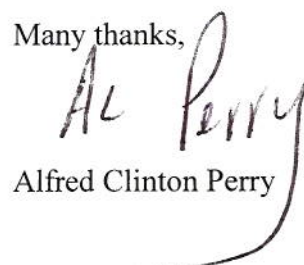 Many thanks,
Al Perry
Alfred Clinton Perry